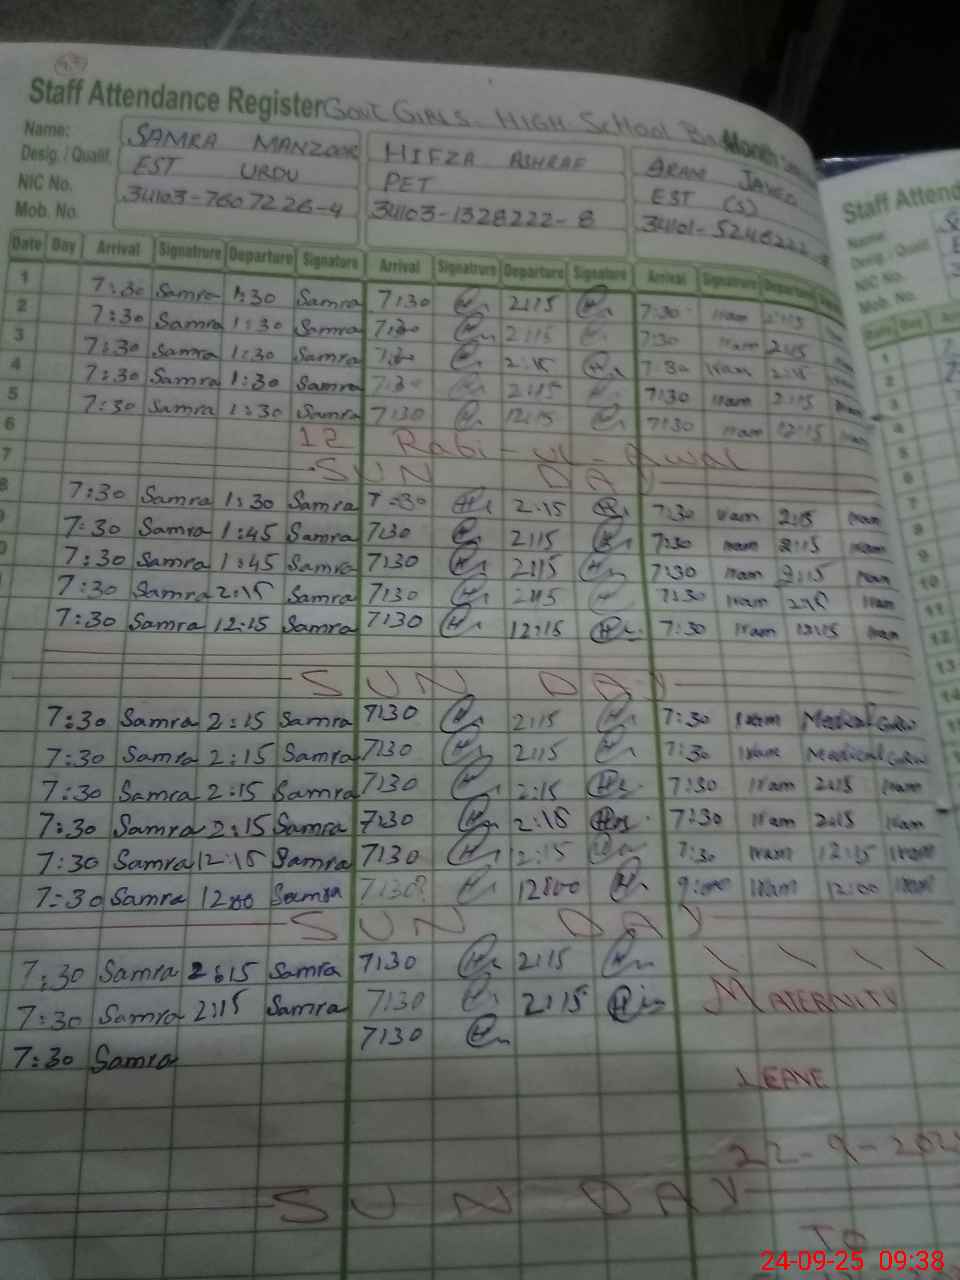 Staff Attendance Register GOVT GIRLS HIGH SCHOOL Month
Name: SAMRA MANZOOR HIFZA ASHRAF JAVED
Desig. / Qualif. EST URDU PET EST (S)
NIC No. 34103-7607226-4 34103-1328222-8
Mob. No.
Date Day Arrival Signatrure Departure Signature Arrival Signatrure Departure Signature Arrival Signatrure Departure
1 7:30 Samra 1:30 Samra 7:30 2:15 7:30 Iram 2:15
2 7:30 Samra 1:30 Samra 7:30 2:15 7:30 Iram 2:15
3 7:30 Samra 1:30 Samra 7:30 2:15 7:30 Iram 2:15
4 7:30 Samra 1:30 Samra 7:30 2:15 7:30 Iram 2:15 Iram
5 7:30 Samra 1:30 Samra 7:30 12:15 7:30 Iram 12:15 Iram
6 12 Rabi-ul-Awal
7 SUNDAY
8 7:30 Samra 1:30 Samra 7:30 2:15 7:30 Iram 2:15 Iram
7:30 Samra 1:45 Samra 7:30 2:15 7:30 Iram 2:15 Iram
7:30 Samra 1:45 Samra 7:30 2:15 7:30 Iram 2:15 Iram
7:30 Samra 2:15 Samra 7:30 2:15 7:30 Iram 2:15 Iram
7:30 Samra 12:15 Samra 7:30 12:15 7:30 Iram 12:15 Iram
SUNDAY
7:30 Samra 2:15 Samra 7:30 2:15 7:30 Iram Medical GRW
7:30 Samra 2:15 Samra 7:30 2:15 7:30 Iram Medical GRW
7:30 Samra 2:15 Samra 7:30 2:15 7:30 Iram 2:15 Iram
7:30 Samra 2:15 Samra 7:30 2:15 7:30 Iram 2:15 Iram
7:30 Samra 12:15 Samra 7:30 12:15 7:30 Iram 12:15 Iram
7:30 Samra 12:00 Samra 7:30 12:00 9:00 Iram 12:00 Iram
SUNDAY
7:30 Samra 2:15 Samra 7:30 2:15
7:30 Samra 2:15 Samra 7:30 2:15 MATERNITY
7:30 Samra 7:30
LEAVE
22-9-202
SUNDAY
TO
Staff Attend
Name:
Desig. / Qualif.
NIC No.
Mob. No.
Date Day
1
2
3
4
5
6
7
8
9
10
11
12
13
14
24-09-25 09:38